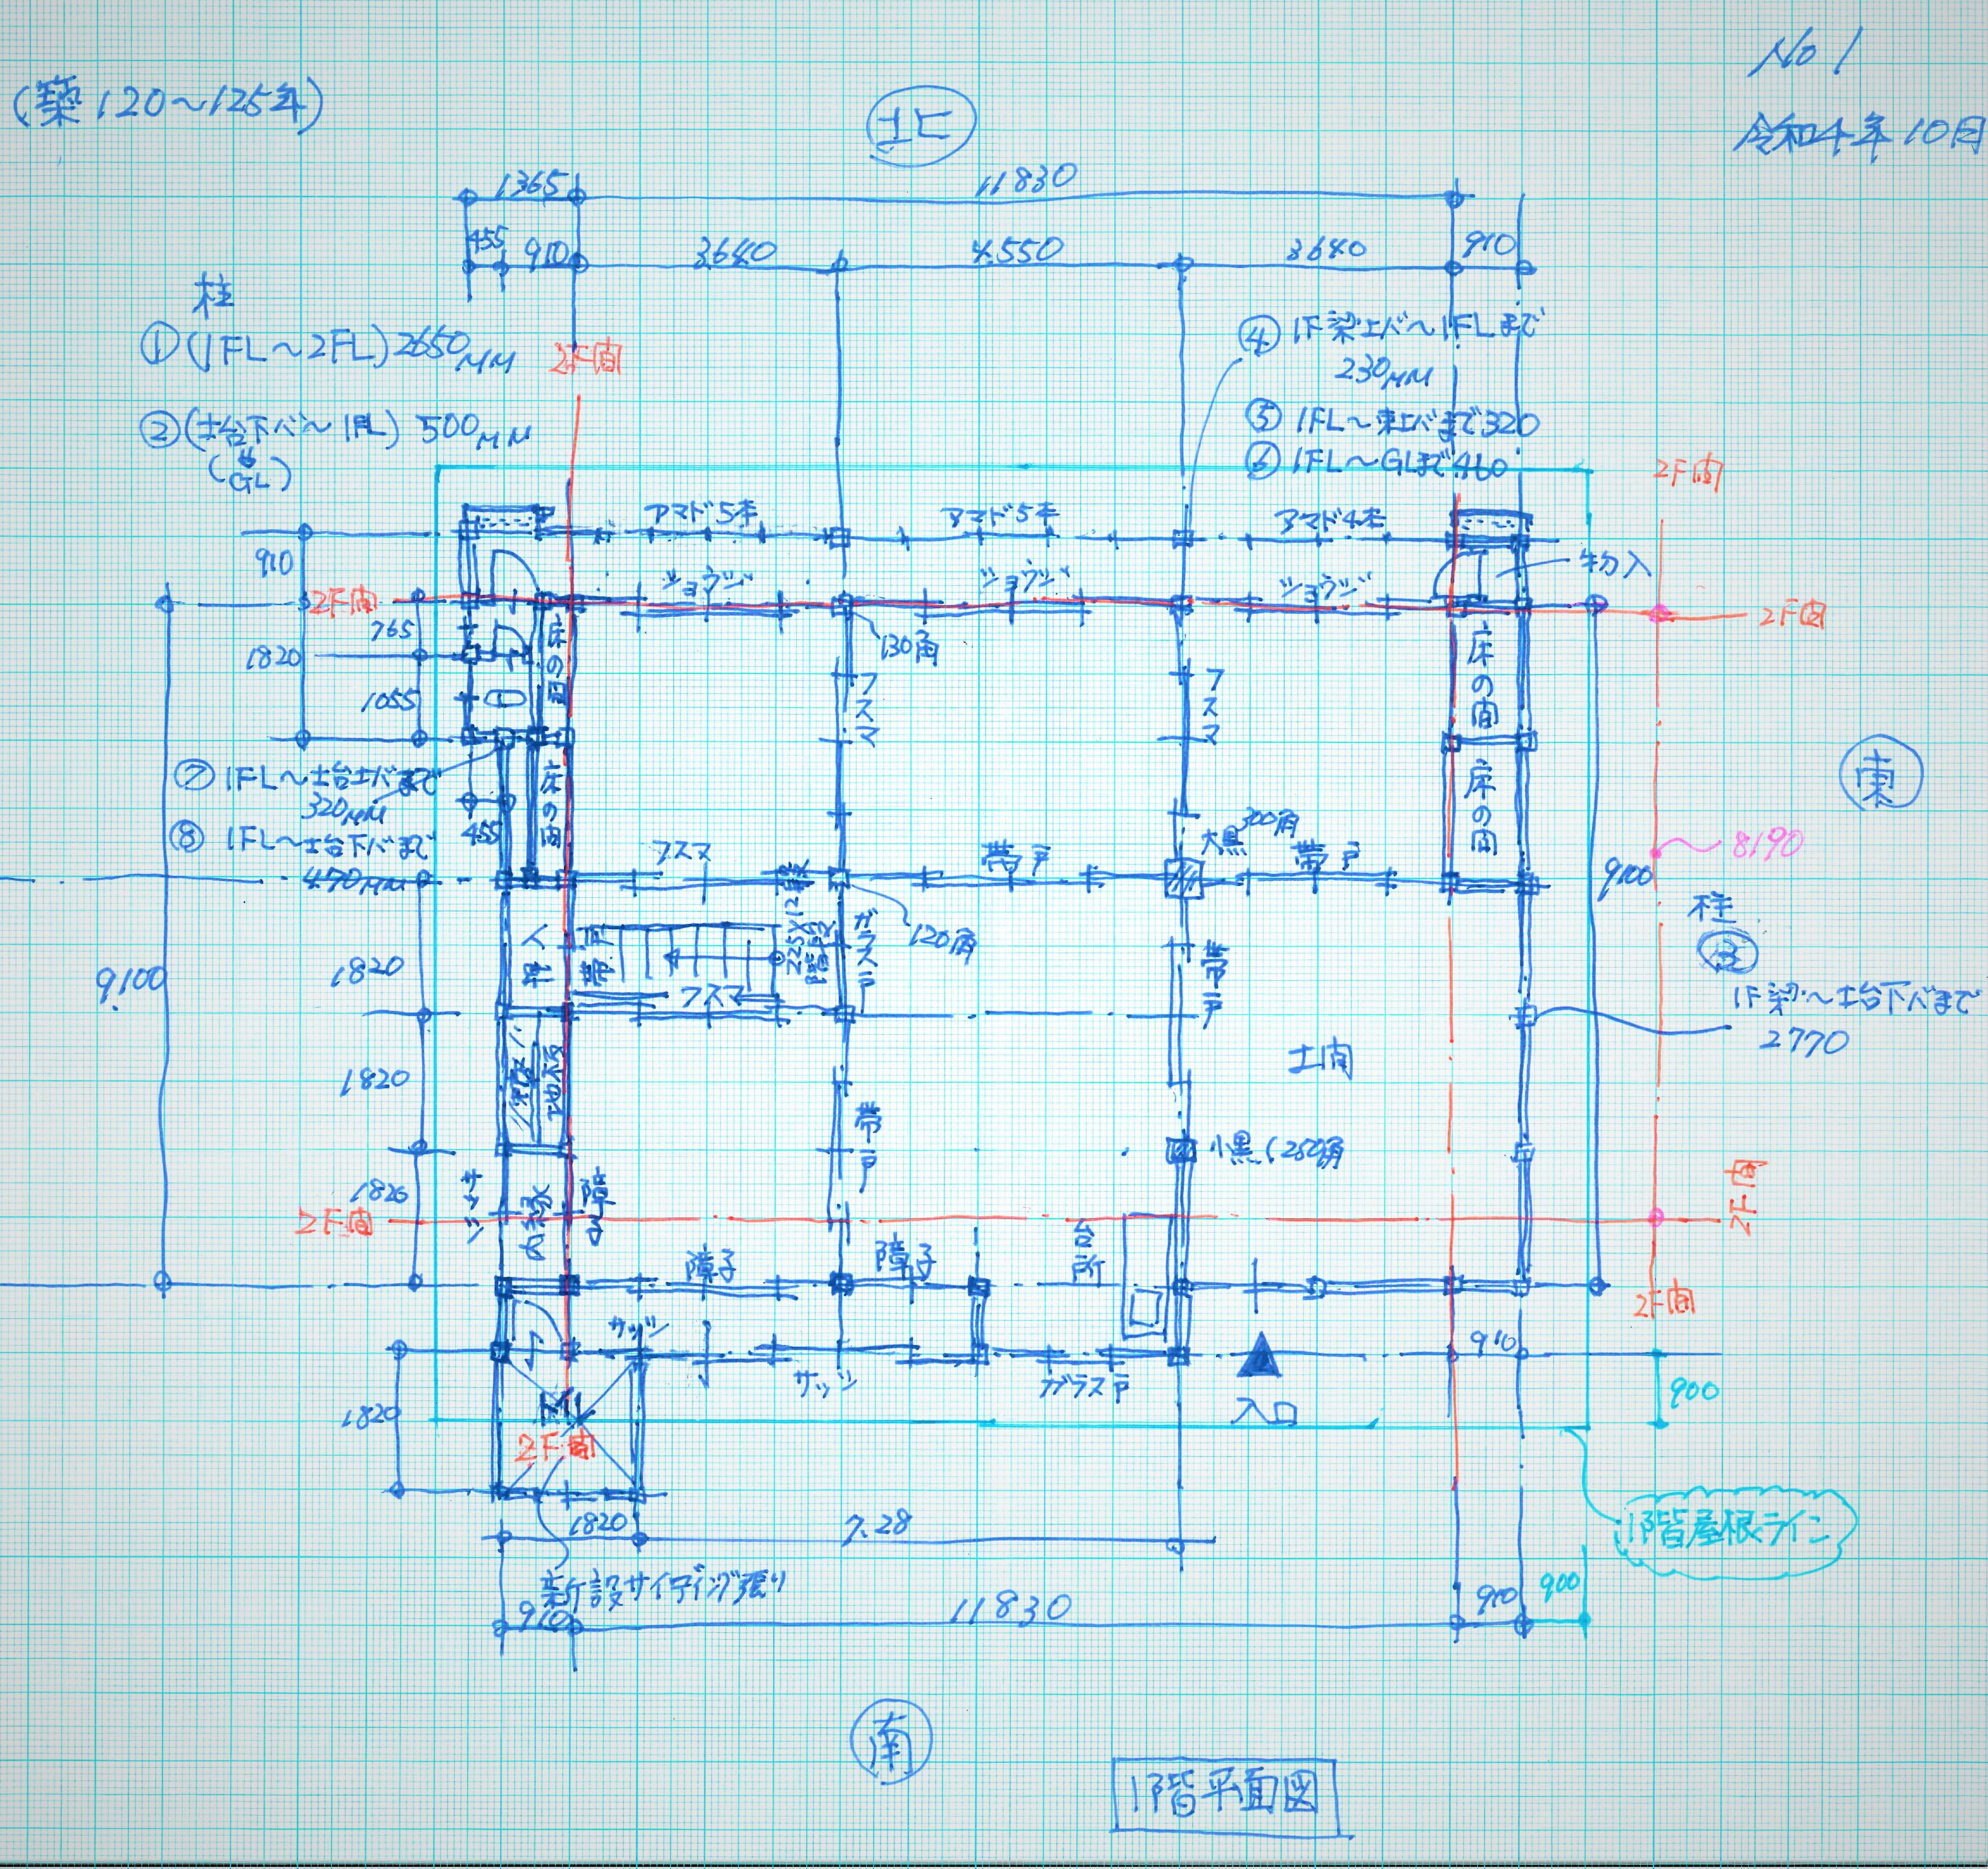 No 1
(築120～125年)
令和4年10月
北
1365
11830
455
910
3640
4.550
3640
910
柱
①(1FL～2FL)2650MM
2F間
④ 1F梁上バ～1FLまで
230MM
②(土台下バ～1FL) 500MM
(GL)
⑤ 1FL～束上バまで320
⑥ 1FL～GLまで460
2F間
アマド5本
アマド5本
アマド4本
910
物入
2F間
ショウジ
ショウジ
ショウジ
2F間
765
床の間
130角
床の間
1820
フスマ
フスマ
1055
⑦ 1FL～土台上バまで
320MM
床の間
床の間
東
455
⑧ 1FL～土台下バまで
470MM
大黒300角
フスマ
帯戸
帯戸
8190
9100
柱
225×12段
階段
ガラス戸
120角
帯戸
③
9100
1820
1F梁～土台下バまで
2770
フスマ
土間
1820
地板
帯戸
小黒(250角
1820
サッシ
障子
2F間
2F間
台所
障子
障子
2F間
サッシ
サッシ
ガラス戸
910
900
1820
入口
2F間
1階屋根ライン
1820
7.28
新設サイディング張り
910
11830
910
900
南
1階平面図